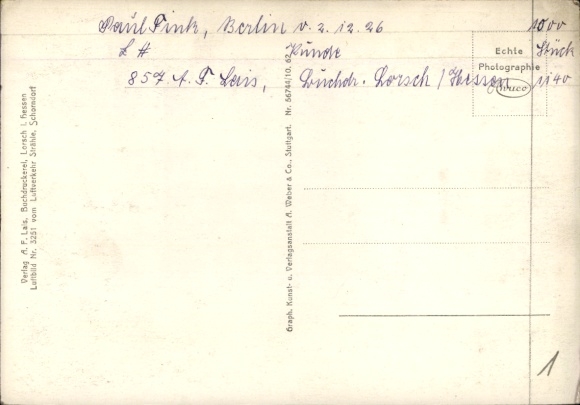 Paul Fink, Berlin v. 2.12.26 1000
L H Kunde Stück
857 A. F. Lais, Buchdr. Lorsch / Hessen 11 40
Echte
Photographie
wuco
Verlag A. F. Lais, Buchdruckerei, Lorsch i. Hessen
Luftbild Nr. 3251 vom Luftverkehr Strähle, Schorndorf
Graph. Kunst- u. Verlagsanstalt A. Weber & Co., Stuttgart. Nr. 56744/10, 62
1